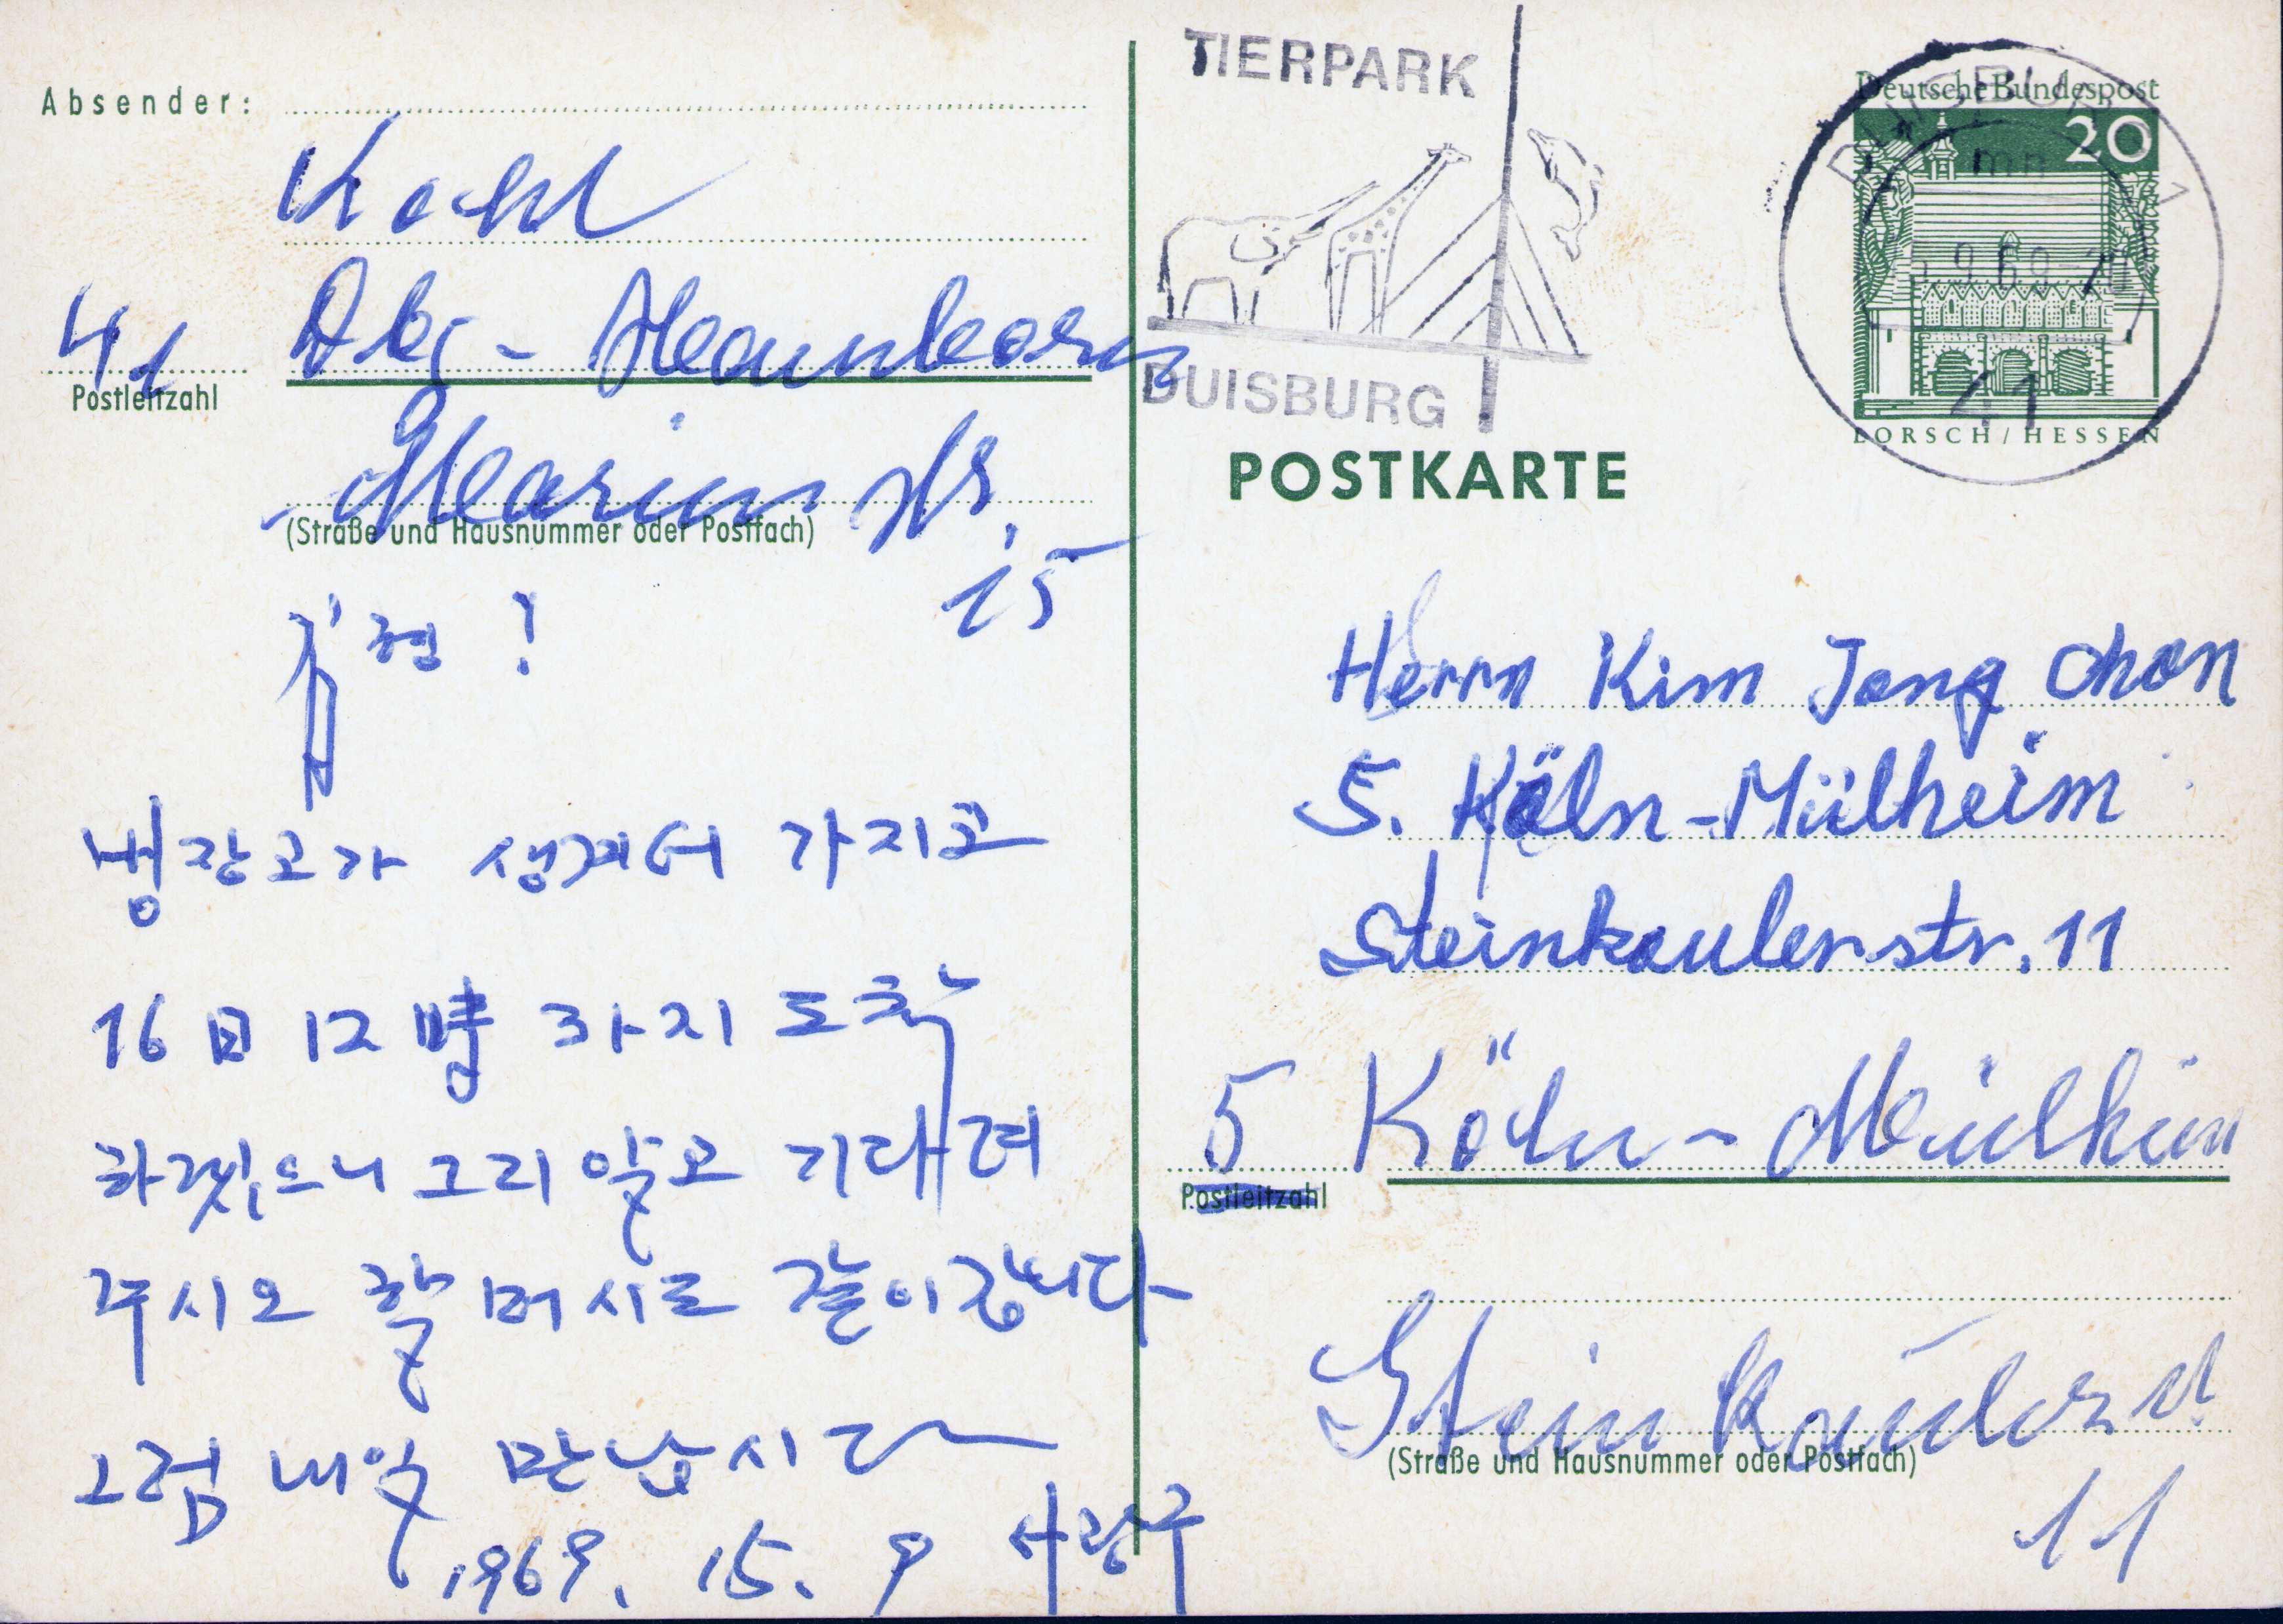 Absender:
Kohl
41 Dbg - Hamborn
Postleitzahl
Marienstr.
(Straße und Hausnummer oder Postfach)
15
형 !
냉장고가 생겨서 가지고
16日 12時 까지 도착
하겠으니 그리 알고 기다려
주시오 할머시로 같이 갑니다
그럼 내일 만납시다
1969. 15. 9
TIERPARK
DUISBURG
Deutsche Bundespost
20
DUISBURG 1
9.69
41
LORSCH/HESSEN
POSTKARTE
Herrn Kim Jong chon
5. Köln-Mülheim
Steinkaulerstr. 11
5 Köln - Mülheim
Postleitzahl
Steinkaulerst
(Straße und Hausnummer oder Postfach)
11